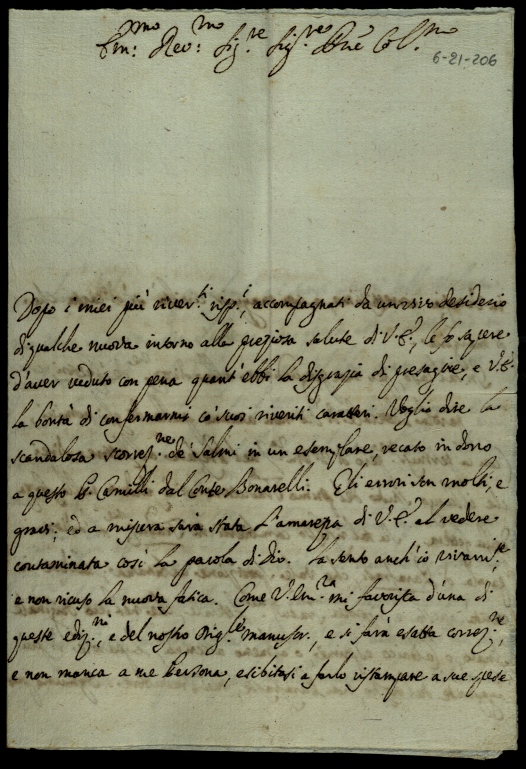 Em:mo Rev:mo Sig.re Sig.re Pne Col.mo
6-21-206
Dopo i miei più river.ti risp.i, accompagnati da un vivo desiderio
di qualche nuova intorno alla preziosa salute di V.E., le fo sapere
d'aver veduto con pena quant'ebbi la disgrazia di presagire, e V.E.
la bontà di confermarmi co' suoi riveriti caratteri. Voglio dire la
scandalosa scorrez.ne de' Salmi in un esemplare, recato in dono
a questo P. Camilli dal Conte Bonarelli. Gli errori son molti, e
gravi; ed a misura sarà stata l'amarezza di V.E. al vedere
contaminata così la parola di Dio. La sento anch'io
e non ricuso la nuova fatica. Come V. Em.za mi favorita d'una di
queste ediz.ni, e del nostro Orig.le manuscr., e si farà esatta correz.ne,
e non manca a me Persona, esibitasi a farlo ristampare a sue spese